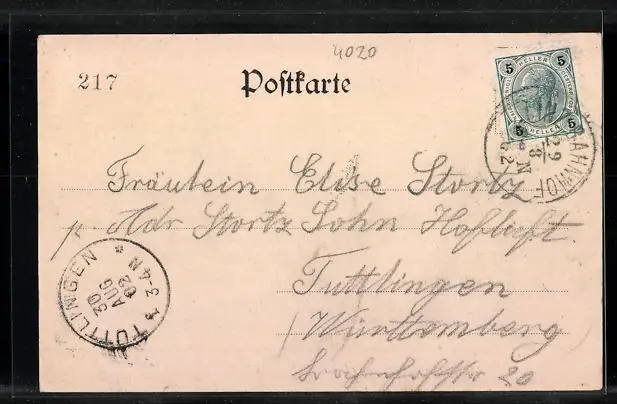 4020
217 Postkarte
5 HELLER 5
5 HELLER 5
BAHNHOF
29 8
Fräulein Elise Stortz
p. Adr Stortz Sohn
Tuttlingen
(Württemberg)
20
TUTTLINGEN
30 AUG 02
3-4 N